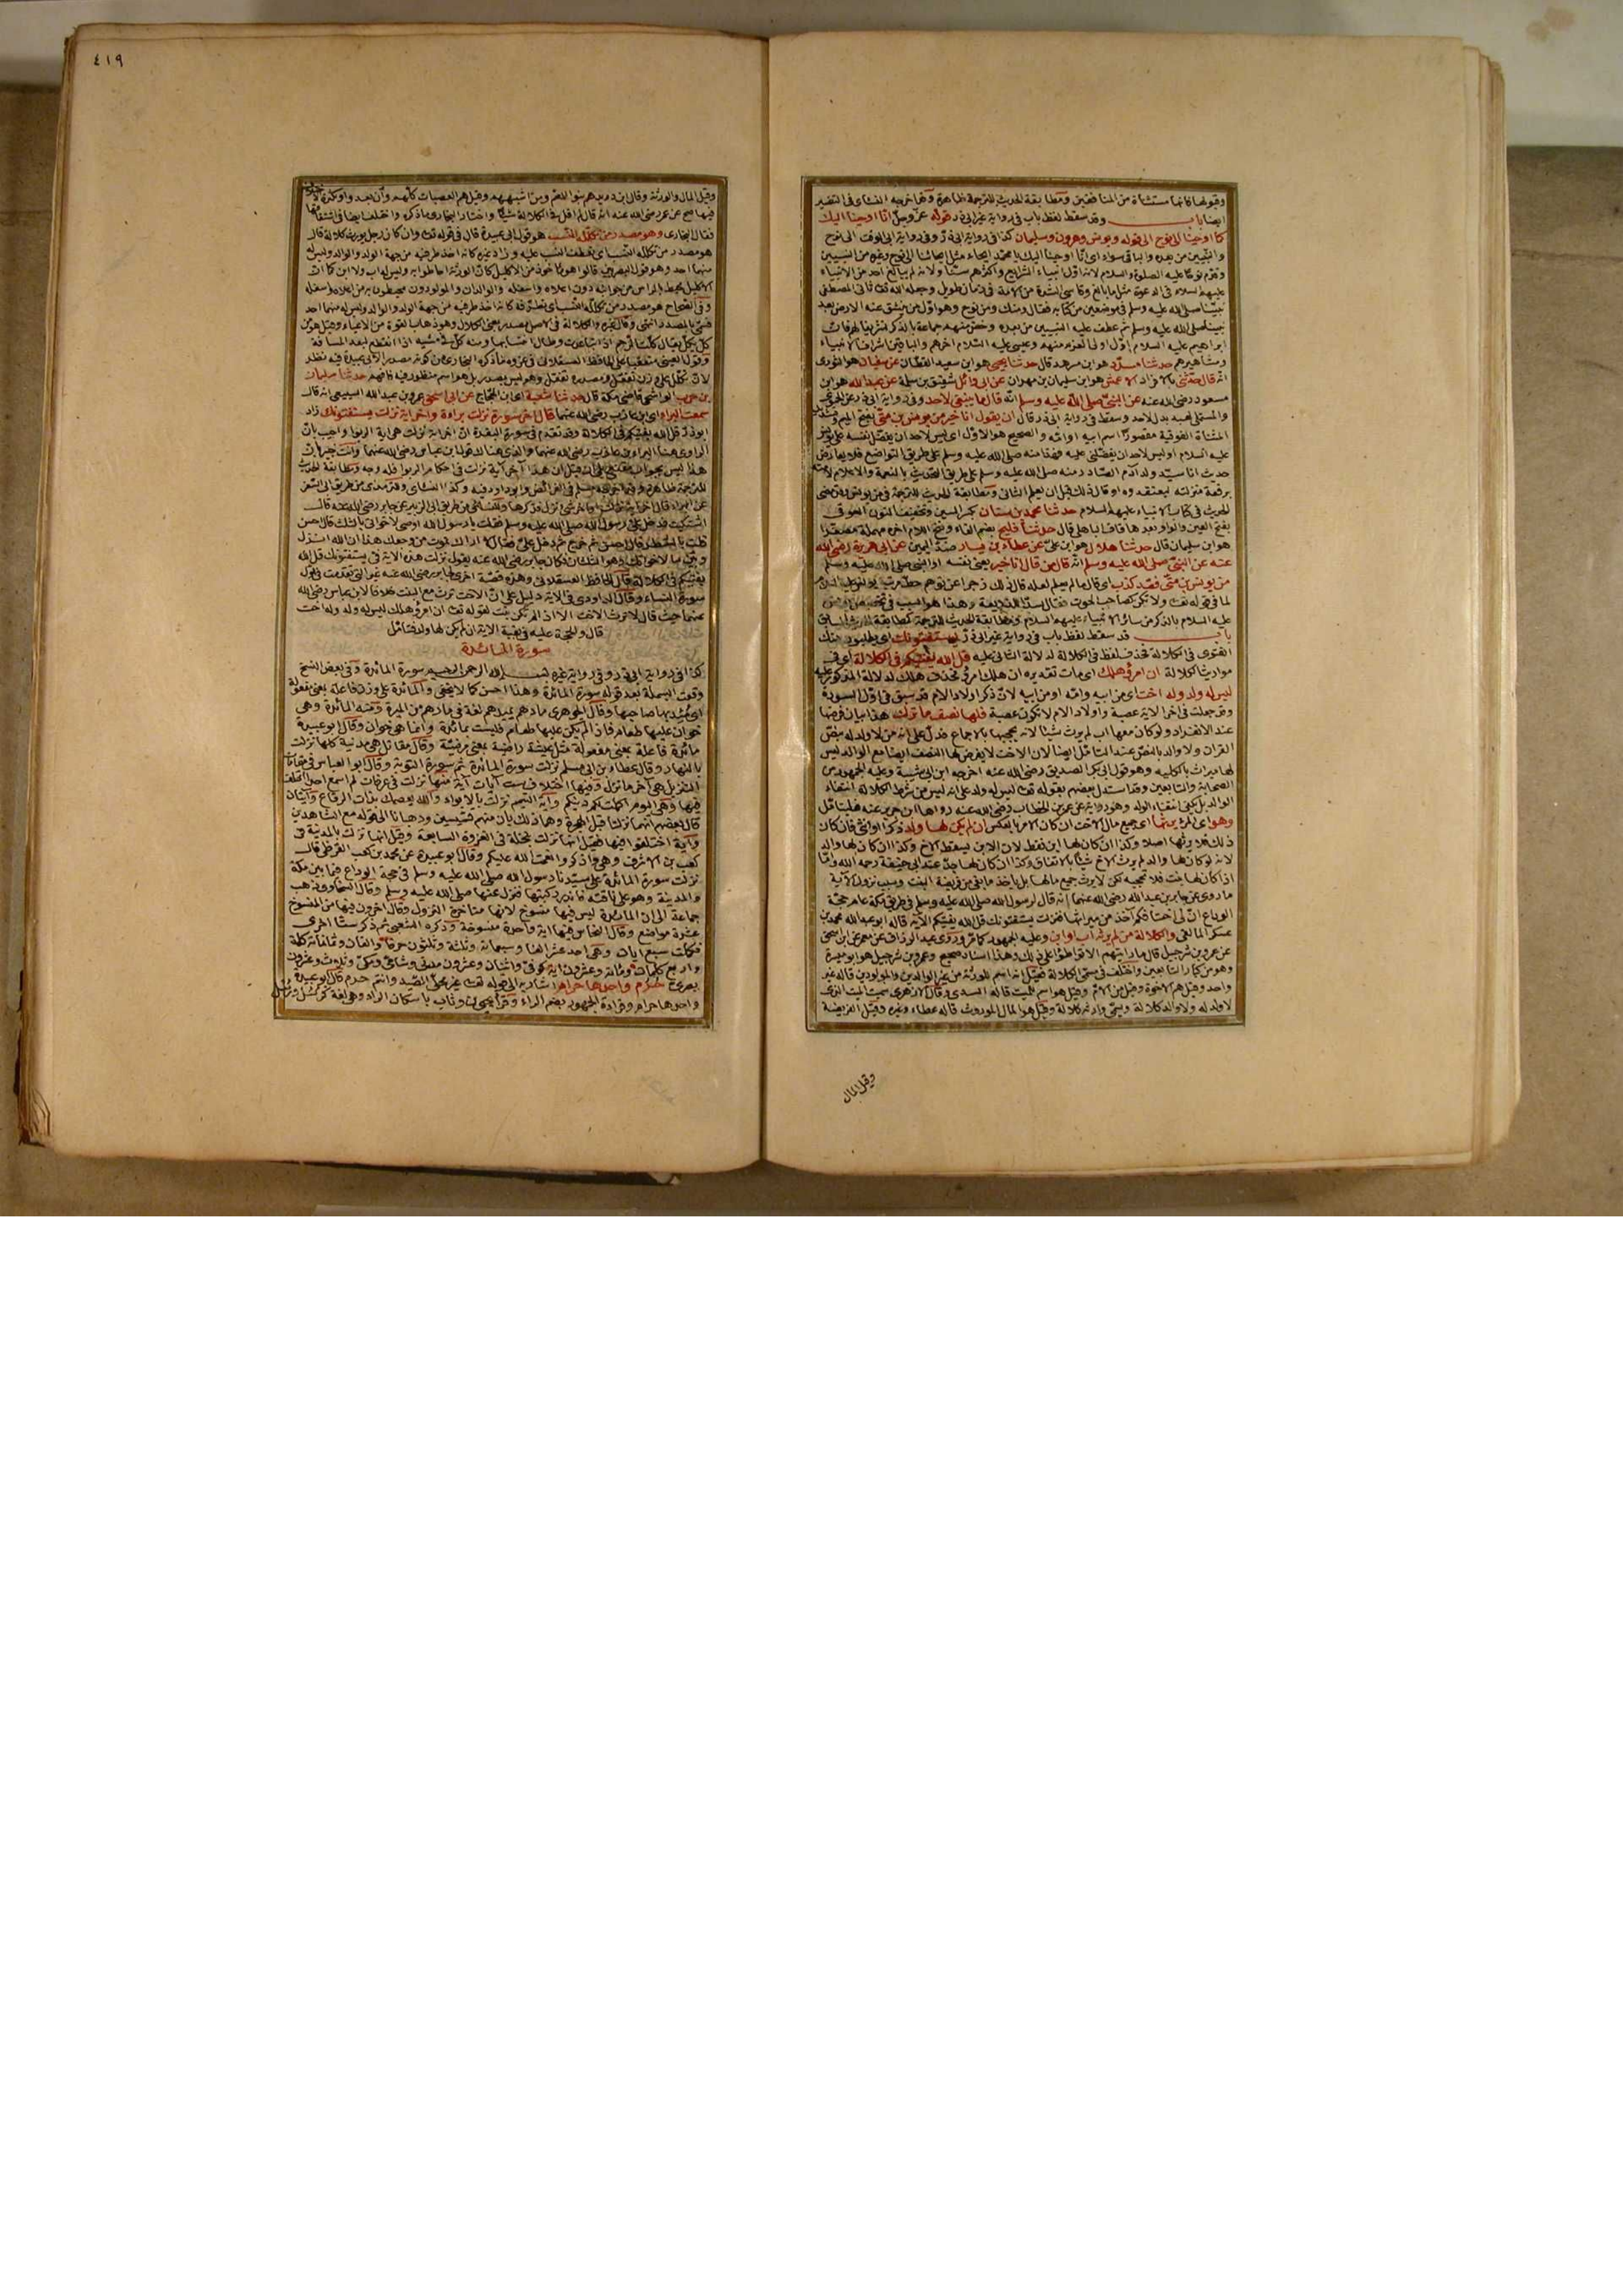 وقبولها كانها مستثناة من المنافقين ومطابقة الحديث للترجمة ظاهرة وقد اخرجه النسائى فى التفسير
ايضا باب وقد سقط لفظ باب فى رواية غير ابى ذر قوله عز وجل انا اوحينا اليك
كما اوحينا الى نوح الى قوله ويونس وهرون وسليمان كذا فى رواية ابى ذر وفى رواية ابى الوقت الى نوح
والنبيين من بعده والباقى سواء اى انا اوحينا اليك يا محمد ايحاء مثل ايحائنا الى نوح وغيره من النبيين
وقدم نوحا عليه الصلوة والسلام لانه اول انبياء الشرايع واكثرهم سنا ولانه لم يبالغ احد من الانبياء
عليهم السلام فى الدعوة مثل ما بالغ وقاسى الشدة من الامة فى زمان طويل وجعله الله تعالى ثانى المصطفى
نبينا صلى الله عليه وسلم فى موضعين من كتابه فقال ومنك ومن نوح وهو اول من ينشق عنه الارض بعد
نبينا صلى الله عليه وسلم ثم عطف عليه النبيين من بعده وخص منهم جماعة بالذكر تشريفا لهم فان
ابراهيم عليه السلام اول اولى العزم منهم وعيسى عليه السلام اخرهم والباقين اشراف الانبياء
ومشاهيرهم حدثنا مسدد هو ابن مسرهد قال حدثنا يحيى هو ابن سعيد القطان عن سفيان هو الثورى
انه قال حدثنى بالافراد الاعمش هو ابن سليمان بن مهران عن ابى وائل شقيق بن سلمة عن عبد الله هو ابن
مسعود رضى الله عنه عن النبى صلى الله عليه وسلم انه قال ما ينبغى لاحد وفى رواية ابى ذر عن الحموى
والمستملى لعبد بدل لاحد وسقط فى رواية ابى ذر قال ان يقول انا خير من يونس بن متى بفتح الميم وتشديد
المثناة الفوقية مقصورا اسم ابيه او امه والصحيح هو الاول اى ليس لاحد ان يفضل نفسه على يونس
عليه السلام او ليس لاحد ان يفضلنى عليه فهذا منه صلى الله عليه وسلم على طريق التواضع فلا يعارض
حديث انا سيد ولد آدم الصادر منه صلى الله عليه وسلم على طريق التحديث بالنعمة والاعلام لامته
برفعة منزلته ليعتقدوه او قال ذلك قبل ان يعلم الثانى ومطابقة الحديث للترجمة فى
الحديث فى كتاب الانبياء عليهم السلام حدثنا محمد بن سنان بكسر السين وتخفيف النون العوقى
بفتح العين والواو بعدها قاف الباهلى قال حدثنا فليح بضم الفاء وفتح اللام اخره مهملة مصغرا
هو ابن سليمان قال حدثنا هلال هو ابن على عن عطاء بن يسار ضد اليمين عن ابى هريرة رضى الله
عنه عن النبى صلى الله عليه وسلم انه قال من قال انا خير يعنى نفسه او النبى صلى الله عليه وسلم
من يونس بن متى فقد كذب اى قال ما لم يعلم لعله قال ذلك زجرا عن توهم حط مرتبة يونس عليه السلام
لما فى قوله تعالى ولا تكن كصاحب الحوت فقال سدا للذريعة وهذا هو السبب فى تخصيص يونس
عليه السلام بالذكر من سائر الانبياء عليهم السلام ومطابقة الحديث للترجمة كمطابقة الحديث السابق
باب قد سقط لفظ باب فى رواية غير ابى ذر يستفتونك اى يطلبون منك
الفتوى فى الكلالة فحذف لفظ فى الكلالة لدلالة الثانى عليه قل الله يفتيكم فى الكلالة اى فى
مواريث الكلالة ان امرؤ هلك اى مات تقديره ان هلك امرؤ فحذف هلك لدلالة المذكور عليه
ليس له ولد وله اخت اى من ابيه وامه او من ابيه لان ذكر اولاد الام قد سبق فى اول السورة
وقد جعلت فى اخر الاية عصبة واولاد الام لا تكون عصبة فلها نصف ما ترك هذا بيان فرضها
عند الانفراد ولو كان معها اب لم يرث شيئا لانه يحجبها بالاجماع فدل على انه من لا ولد له بنص
القران ولا والد بالنص عند التامل ايضا لان الاخت لا يفرض لها النصف ايضا مع الوالد ليس
لها ميراث بالكلية وهو قول ابى بكر الصديق رضى الله عنه اخرجه ابن ابى شيبة وعليه الجمهور من
الصحابة والتابعين وقد استدل بعضهم بقوله تعالى ليس له ولد على انه ليس من شرط الكلالة انتفاء
الوالد بل يكفى انتفاء الولد وهو رواية عن عمر بن الخطاب رضى الله عنه رواها ابن جرير عنه فليتامل
وهو اى المرء يرثها اى جميع مال الاخت ان كان الامر بالعكس ان لم يكن لها ولد ذكرا او انثى فان كان
ذلك فلا يرثها اصلا وكذا ان كان لها ابن فقط لان الابن يسقط الاخ وكذا ان كان لها والد
لانه لو كان لها والد لم يرث الاخ شيئا بالاتفاق وكذا ان كان لها جد عند ابى حنيفة رحمه الله واما
اذا كان لها بنت فلا تحجبه لكن لا يرث جميع مالها بل ياخذ ما بقى من فريضة البنت وسبب نزول الآية
ما روى عن جابر بن عبد الله رضى الله عنهما انه قال لرسول الله صلى الله عليه وسلم فى طريق مكة عام حجة
الوداع ان لى اختا فكم آخذ من ميراثها فنزلت يستفتونك قل الله يفتيكم الآية قاله ابو عبد الله محمد بن
عسكر المالقى والكلالة من لم يرثه اب او ابن وعليه الجمهور كما مر وروى عبد الرزاق عن معمر عن ابى اسحق
عن عمرو بن شرحبيل قال ما رايتهم الا تواطؤا على ذلك وهذا اسناد صحيح وعمرو بن شرحبيل هو ابو ميسرة
وهو من كبار التابعين واختلف فى مسمى الكلالة فقيل انه اسم للورثة من غير الوالدين والمولودين قاله غير
واحد وقيل هم الاخوة وقيل من الام وقيل هو اسم للميت قاله السدى وقال الازهرى سمى الميت الذى
لا ولد له ولا والد كلالة ويسمى وارثه كلالة وقيل هو المال الموروث قاله عطاء وغيره وقيل الفريضة
وقيل المال
٤١٩
وقيل المال والورثة وقال ابن دريد هم بنو العم ومن اشبههم وقيل هم العصبات كلهم وان بعدوا ولكثرة
فيها صح عن عمر رضى الله عنه انه قال لم اقل فى الكلالة شيئا واختار البخارى ما ذكره واختلف ايضا فى اشتقاقها
فقال البخارى وهو مصدر من تكلله النسب هو قول ابى عبيدة قال فى قوله تعالى وان كان رجل يورث كلالة قال
هو مصدر من تكلله النسب اى تعطف النسب عليه وزاد غيره كانه اخذ طرفيه من جهة الولد والوالد وليس له
منهما احد وهو قول البصريين قالوا هو ماخوذ من الاكليل كان الورثة احاطوا به وليس له اب ولا ابن كما ان
الاكليل يحيط بالراس من جوانبه دون اعلاه واسفله والوالدان والمولودون محيطون به من اعلاه واسفله
وفى الصحاح هو مصدر من تكلله النسب اى تطرفه كانه اخذ طرفيه من جهة الولد والوالد وليس له منهما احد
فسمى بالمصدر انتهى وقال غيره والكلالة فى الاصل مصدر بمعنى الكلال وهو ذهاب القوة من الاعياء وقيل هو من
كل يكل يقال كلت الرحم اذا تباعدت وطال انتسابها ومنه كل فى مشيه اذا انقطع لبعد المسافة
وقول العينى متعقبا على الحافظ العسقلانى فى عزوه ما ذكره البخارى من كونه مصدرا الى ابى عبيدة فيه نظر
لان تكلل على وزن تفعل ومصدره تفعل وهو ليس بمصدر بل هو اسم منظور فيه فافهم حدثنا سليمان
بن حرب الواشحى قاضى مكة قال حدثنا شعبة اى ابن الحجاج عن ابى اسحق عمرو بن عبد الله السبيعى انه قال
سمعت البراء اى ابن عازب رضى الله عنهما قال اخر سورة نزلت براءة واخر اية نزلت يستفتونك زاد
ابو ذر قل الله يفتيكم فى الكلالة وقد تقدم فى سورة البقرة ان اخر اية نزلت هى اية الربوا واجيب بان
الراوى هنا البراء بن عازب رضى الله عنهما والذى هناك قول ابن عباس رضى الله عنهما وانت خبير بان
هذا ليس بجواب
للترجمة ظاهرة وقد اخرجه مسلم فى الفرائض وابو داود فيه وكذا النسائى والترمذى من طريق ابى السفر
عن البراء قال اخر اية نزلت او اخر شئ نزل فذكرها وللنسائى من طريق ابى الزبير عن جابر رضى الله عنه قال
اشتكيت فدخل على رسول الله صلى الله عليه وسلم فقلت يا رسول الله اوصى لاخواتى بالثلث قال احسن
قلت بالشطر قال احسن ثم خرج ثم دخل على فقال لا اراك تموت من وجعك هذا ان الله انزل
وبين ما لاخواتك وهو الثلثان فكان جابر رضى الله عنه يقول نزلت هذه الآية فى يستفتونك قل الله
يفتيكم فى الكلالة قال الحافظ العسقلانى وهذه قصة اخرى لجابر رضى الله عنه غير التى تقدمت فى اول
سورة النساء وقال الداودى فى الآية دليل على ان الاخت ترث مع البنت خلافا لابن عباس رضى الله
عنهما حيث قال لا ترث الاخت الا اذا لم تكن بنت لقوله تعالى ان امرؤ هلك ليس له ولد وله اخت
قال والحجة عليه فى بقية الآية ان لم يكن لها ولد فتامل
سورة المائدة
كذا فى رواية ابى ذر وفى رواية غيره بسم الله الرحمن الرحيم سورة المائدة وفى بعض النسخ
وقعت البسملة بعد قوله سورة المائدة وهذا احسن كما لا يخفى والمائدة على وزن فاعلة بمعنى مفعولة
اى ميد بها صاحبها وقال الجوهرى مادهم يميدهم لغة فى مارهم من الميرة ومنه المائدة وهى
خوان عليها طعام فاذا لم يكن عليها طعام فليست بمائدة وانما هو خوان وقال ابو عبيدة
مائدة فاعلة بمعنى مفعولة مثل عيشة راضية بمعنى مرضية وقال مقاتل هى مدنية كلها نزلت
بالنهار وقال عطاء بن ابى مسلم نزلت سورة المائدة ثم سورة التوبة وقال ابو العباس فى مقامات
التنزيل هى آخر ما نزل وفيها اختلاف ست آيات آية منها نزلت فى عرفات لم اسمع احدا اختلف
فيها وهى اليوم اكملت لكم دينكم واية التيمم نزلت بالابواء والله يعصمك بذات الرقاع وآيتان
قال بعضهم انهما نزلتا قبل الهجرة وهما ذلك بان منهم قسيسين ورهبانا الى قوله مع الشاهدين
واية اختلفوا فيها فقيل انها نزلت بنخلة فى الغزوة السابعة وقيل انها نزلت بالمدينة فى
كعب بن الاشرف وهى واذكروا نعمة الله عليكم وقال ابو عبيدة عن محمد بن كعب القرظى قال
نزلت سورة المائدة على سيدنا رسول الله صلى الله عليه وسلم فى حجة الوداع فيما بين مكة
والمدينة وهو على ناقته فاندر ركبتها فنزل عنها صلى الله عليه وسلم وقال السخاوى ذهب
جماعة الى ان المائدة ليس فيها منسوخ لانها متاخرة النزول وقال اخرون فيها من المنسوخ
عشرة مواضع وقال النحاس فيها اية واحدة منسوخة وذكره الشعبى ثم ذكر ستا اخرى
فكملت سبع ايات وهى احد عشر الفا وسبعمائة وثلثة وثلثون حرفا والفان وثمانمائة كلمة
واربع كلمات ومائة وعشرون اية كوفى واثنتان وعشرون مدنى وشامى ومكى وثلاث وعشرون
بصرى حرم واحدها حرام اشار به الى قوله تعالى غير محلى الصيد وانتم حرم قال ابو عبيدة
واحدها حرام وقراءة الجمهور بضم الراء وقرا يحيى بن وثاب باسكان الراء وهى لغة كرسل ورسل